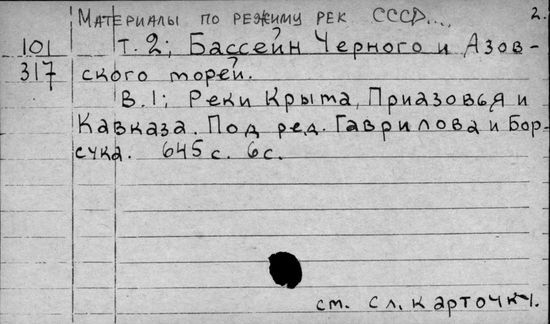 Материалы по режиму рек СССР... 2.
101 т. 2; Бассейн Черного и Азов-
317 ского морей.
В. 1; Реки Крыма, Приазовья и
Кавказа. Под ред. Гаврилова и Бор-
сука. 645 с. 6 с.
см. сл. карточк